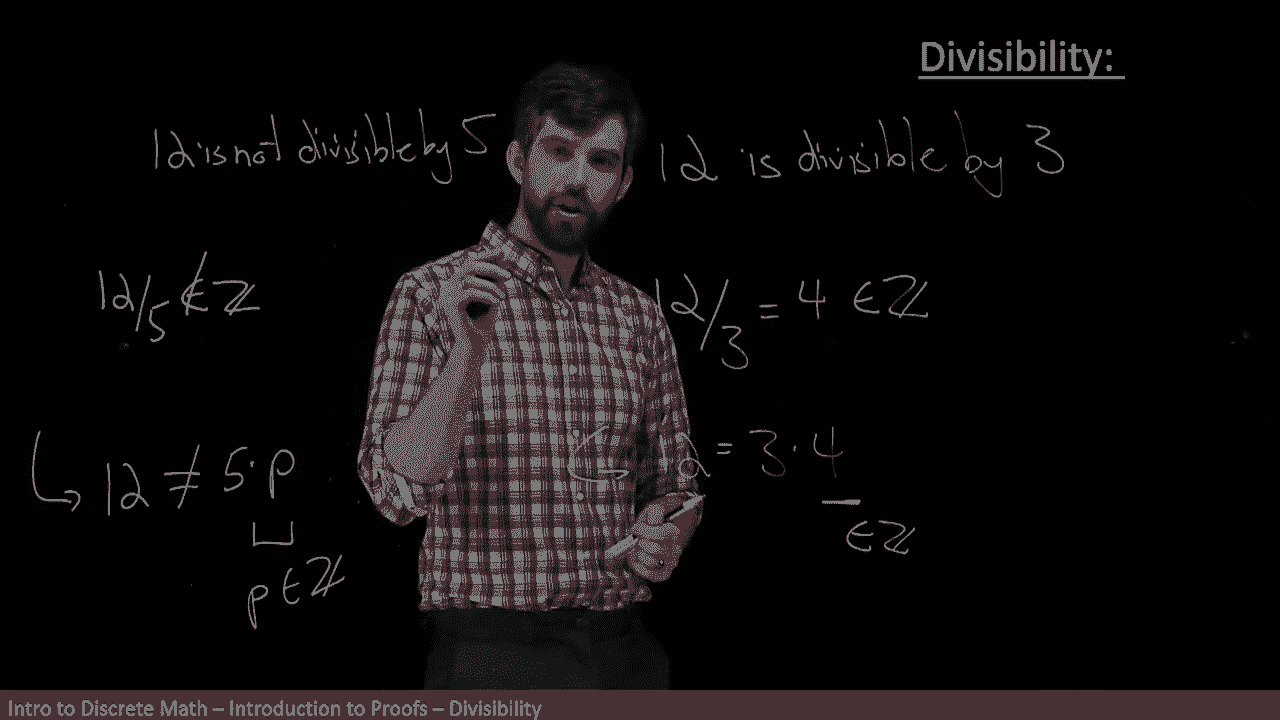 Divisibility:
12 is not divisible by 5
12 is divisible by 3
12/5 ∉ ℤ
12/3 = 4 ∈ ℤ
↳ 12 ≠ 5·p
p ∈ ℤ
↳ 12 = 3·4
∈ ℤ
Intro to Discrete Math – Introduction to Proofs – Divisibility